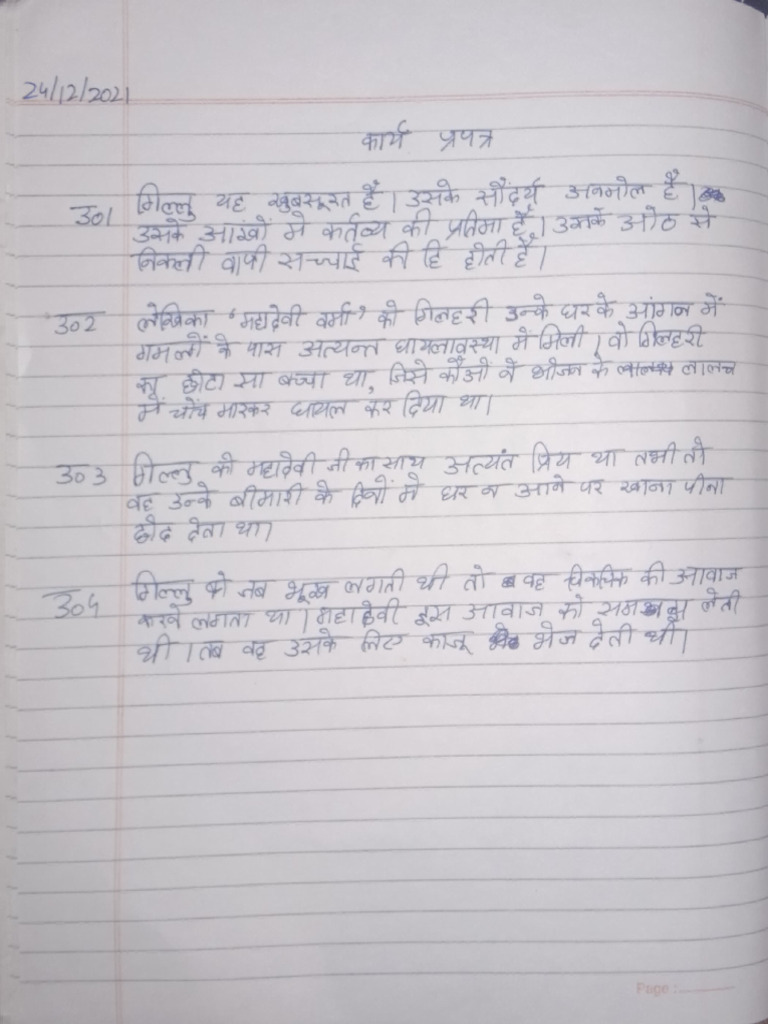 24/12/2021
कार्य प्रपत्र
उ०1 गिल्लु यह खुबसूरत है। उसके सौंदर्य अनमोल है।
उसके आंखों मे कर्तव्य की प्रतिमा है। उसके ओठ से
निकली वाणी सच्चाई की हि होती है।
उ०2 लेखिका 'महादेवी वर्मा' को गिलहरी उन्के घर के आंगन में
गमलों के पास अत्यन्त घायलावस्था में मिली। वो गिलहरी
का छोटा सा बच्चा था, जिसे कौओ ने भोजन के लालच
में चोंच मारकर घायल कर दिया था।
उ०3 गिल्लु को महादेवी जी का साथ अत्यंत प्रिय था तभी तो
वह उन्के बीमारी के दिनों मे घर न आने पर खाना पीना
छोद देता था।
उ०4 गिल्लु को जब भूख लगती थी तो वह चिकचिक की आवाज
करने लगता था। महादेवी इस आवाज को समझ लेती
थी। तब वह उसके लिए काजू भेज देती थी।
Page :